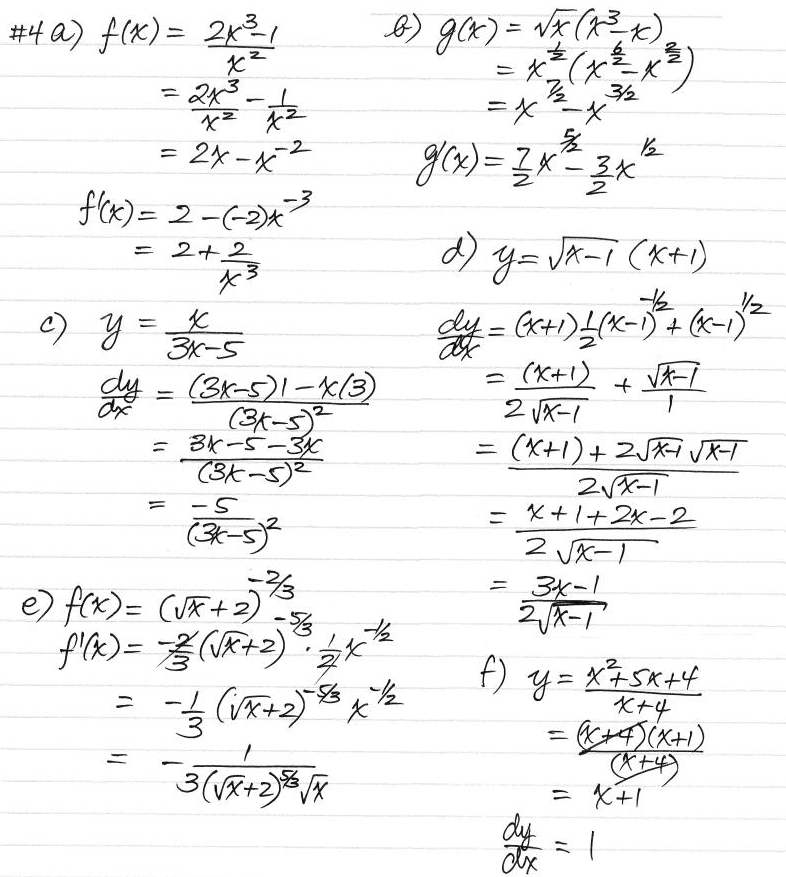 #4 a) f(x) = (2x³-1)/x²
= 2x³/x² - 1/x²
= 2x - x⁻²
f'(x) = 2 - (-2)x⁻³
= 2 + 2/x³
b) g(x) = √x (x³-x)
= x^(1/2) (x^(6/2) - x^(2/2))
= x^(7/2) - x^(3/2)
g'(x) = 7/2 x^(5/2) - 3/2 x^(1/2)
c) y = x/(3x-5)
dy/dx = ((3x-5)1 - x(3))/(3x-5)²
= (3x-5-3x)/(3x-5)²
= -5/(3x-5)²
d) y = √(x-1) (x+1)
dy/dx = (x+1) 1/2 (x-1)^(-1/2) + (x-1)^(1/2)
= (x+1)/(2√(x-1)) + √(x-1)/1
= ((x+1) + 2√(x-1) √(x-1))/(2√(x-1))
= (x+1+2x-2)/(2√(x-1))
= (3x-1)/(2√(x-1))
e) f(x) = (√x+2)^(-2/3)
f'(x) = -2/3 (√x+2)^(-5/3) · 1/2 x^(-1/2)
= -1/3 (√x+2)^(-5/3) x^(-1/2)
= - 1/(3(√x+2)^(5/3) √x)
f) y = (x²+5x+4)/(x+4)
= (x+4)(x+1)/(x+4)
= x+1
dy/dx = 1